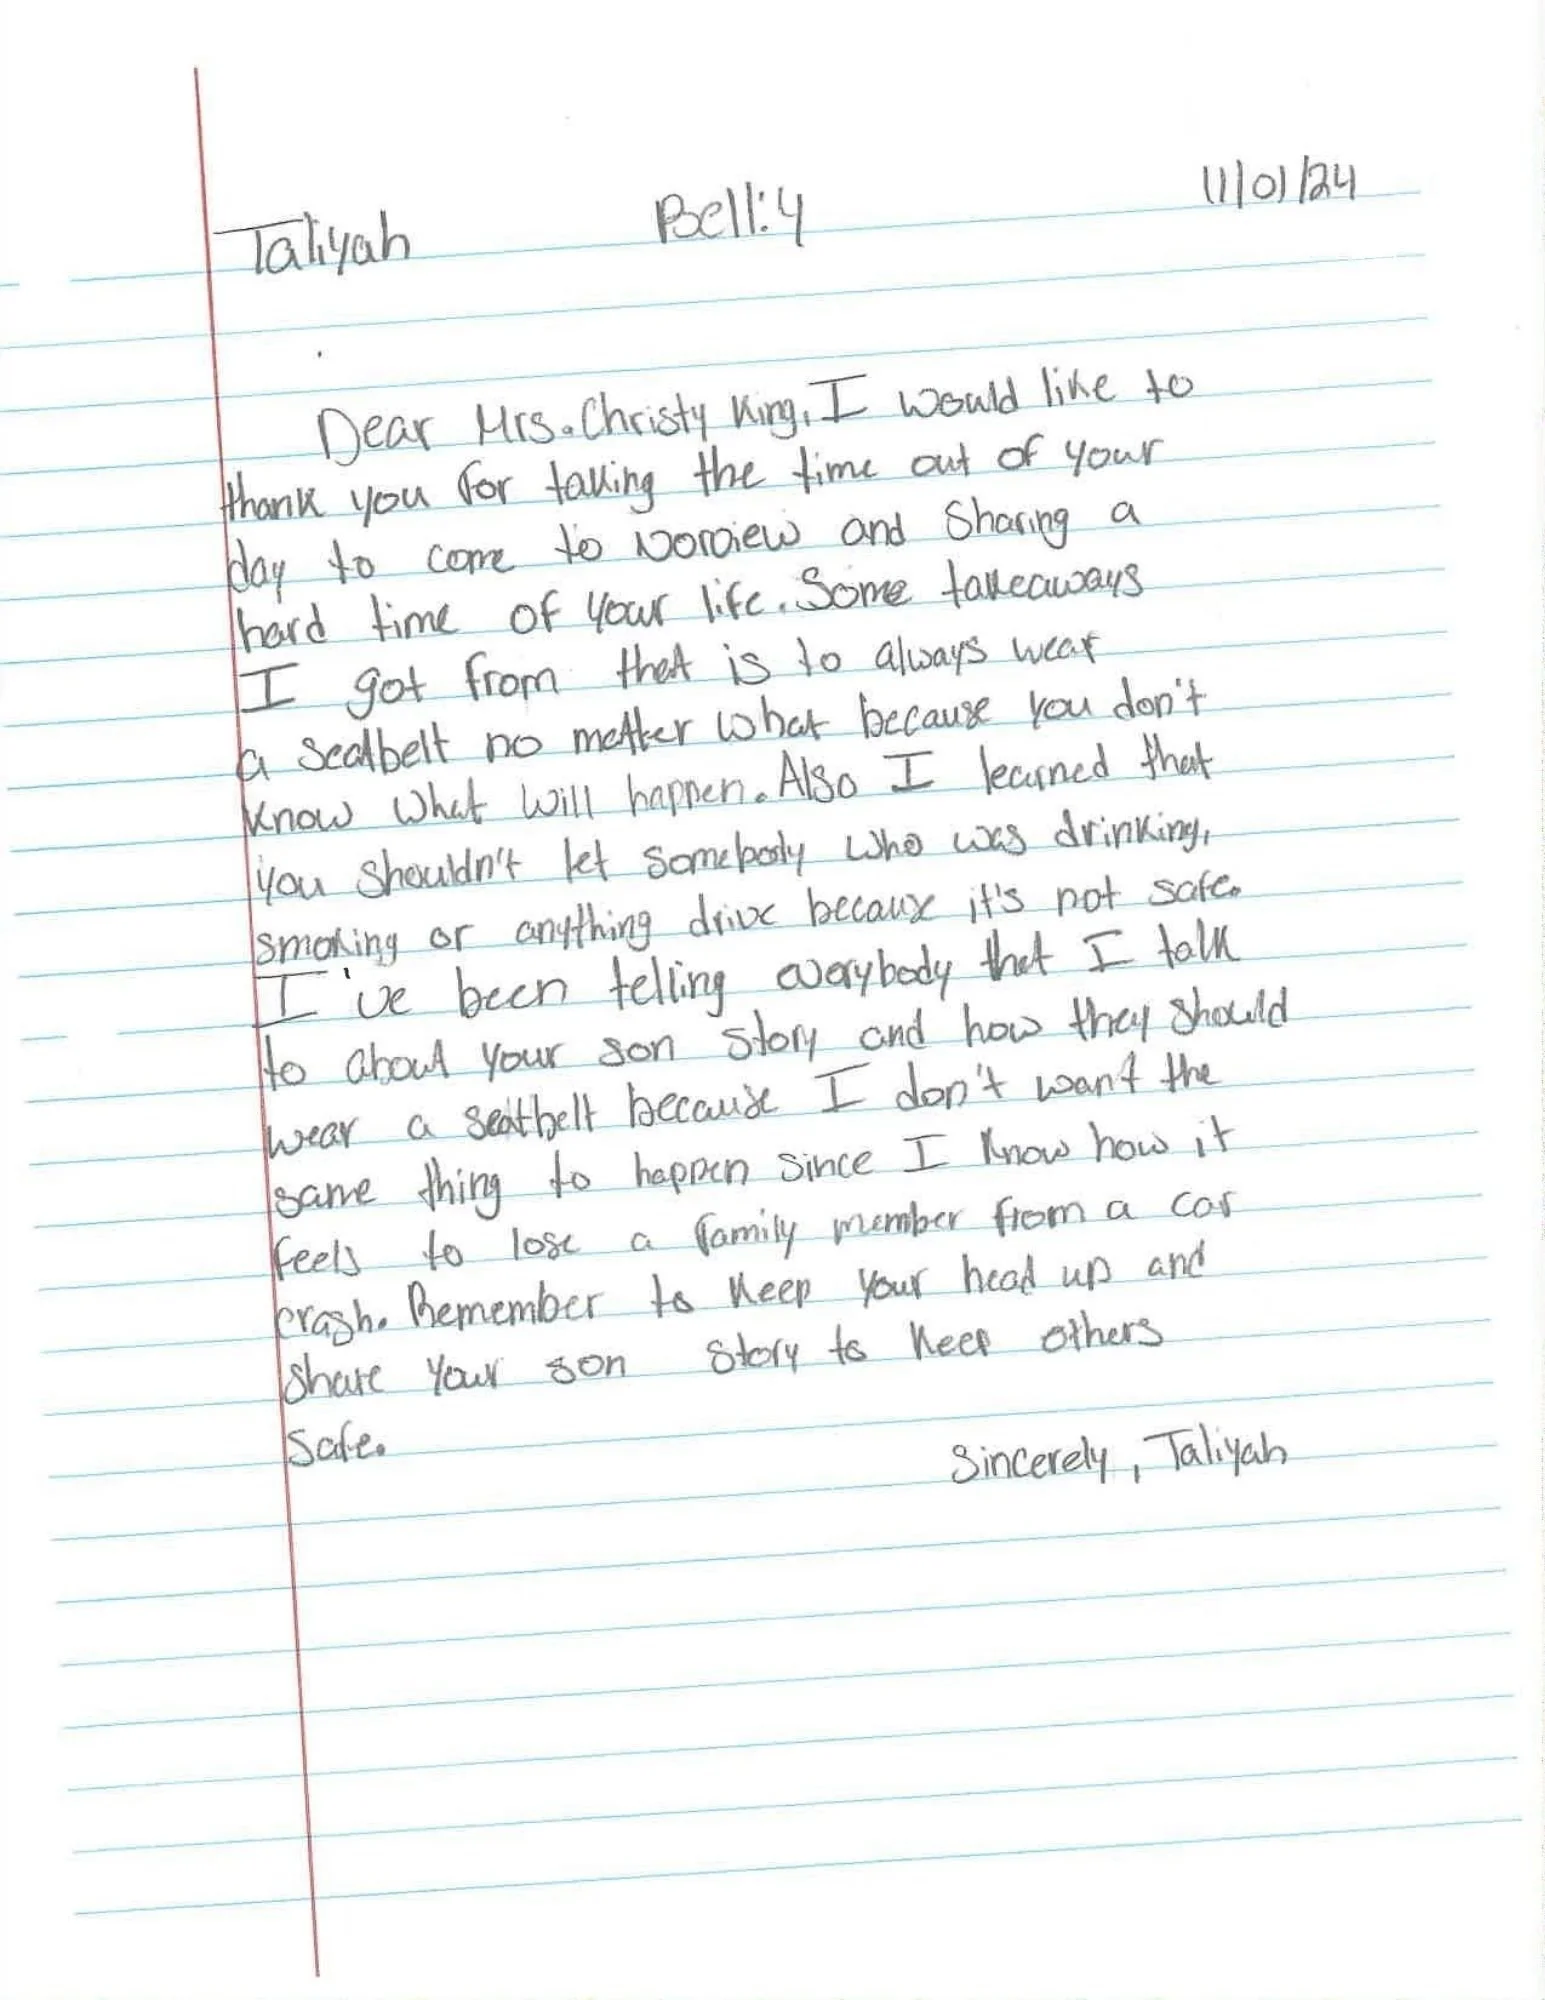 Taliyah Bell:4 11/01/24
Dear Mrs. Christy King, I would like to
thank you for taking the time out of your
day to come to Norview and sharing a
hard time of your life. Some takeaways
I got from that is to always wear
a seatbelt no matter what because you don't
know what will happen. Also I learned that
you shouldn't let somebody who was drinking,
smoking or anything drive because it's not safe.
I've been telling everybody that I talk
to about your son story and how they should
wear a seatbelt because I don't want the
same thing to happen since I know how it
feels to lose a family member from a car
crash. Remember to keep your head up and
share your son story to keep others
safe.
Sincerely, Taliyah